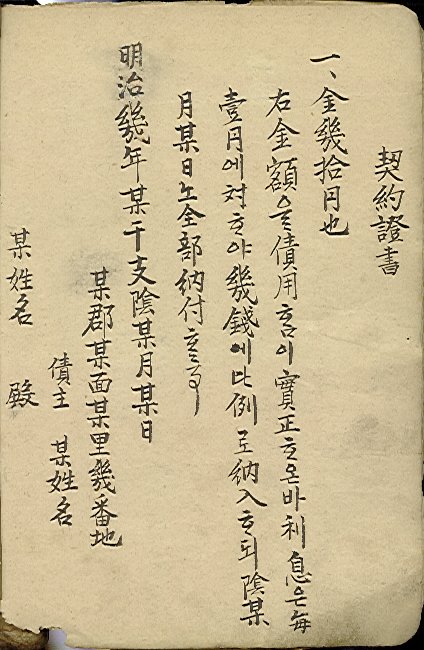 契約證書
一、金幾拾円也
右金額을債用ᄒᆞᆷ이實正ᄒᆞ온바利息은每
壹円에対ᄒᆞ야幾錢에比例로納入ᄒᆞ되陰某
月某日노全部納付ᄒᆞᆯ事
明治幾年某干支陰某月某日
某郡某面某里幾番地
債主 某姓名
某姓名 殿